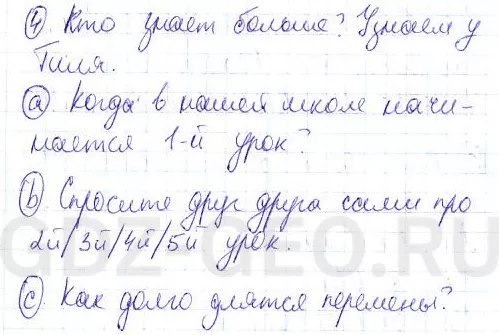 ④ Кто знает больше? Узнаем у
Тиля.
ⓐ Когда в нашей школе начи-
нается 1-й урок?
ⓑ Спросите друг друга сами про
2й/3й/4й/5й урок.
GDZ-GEO.RU
ⓒ Как долго длятся перемены?